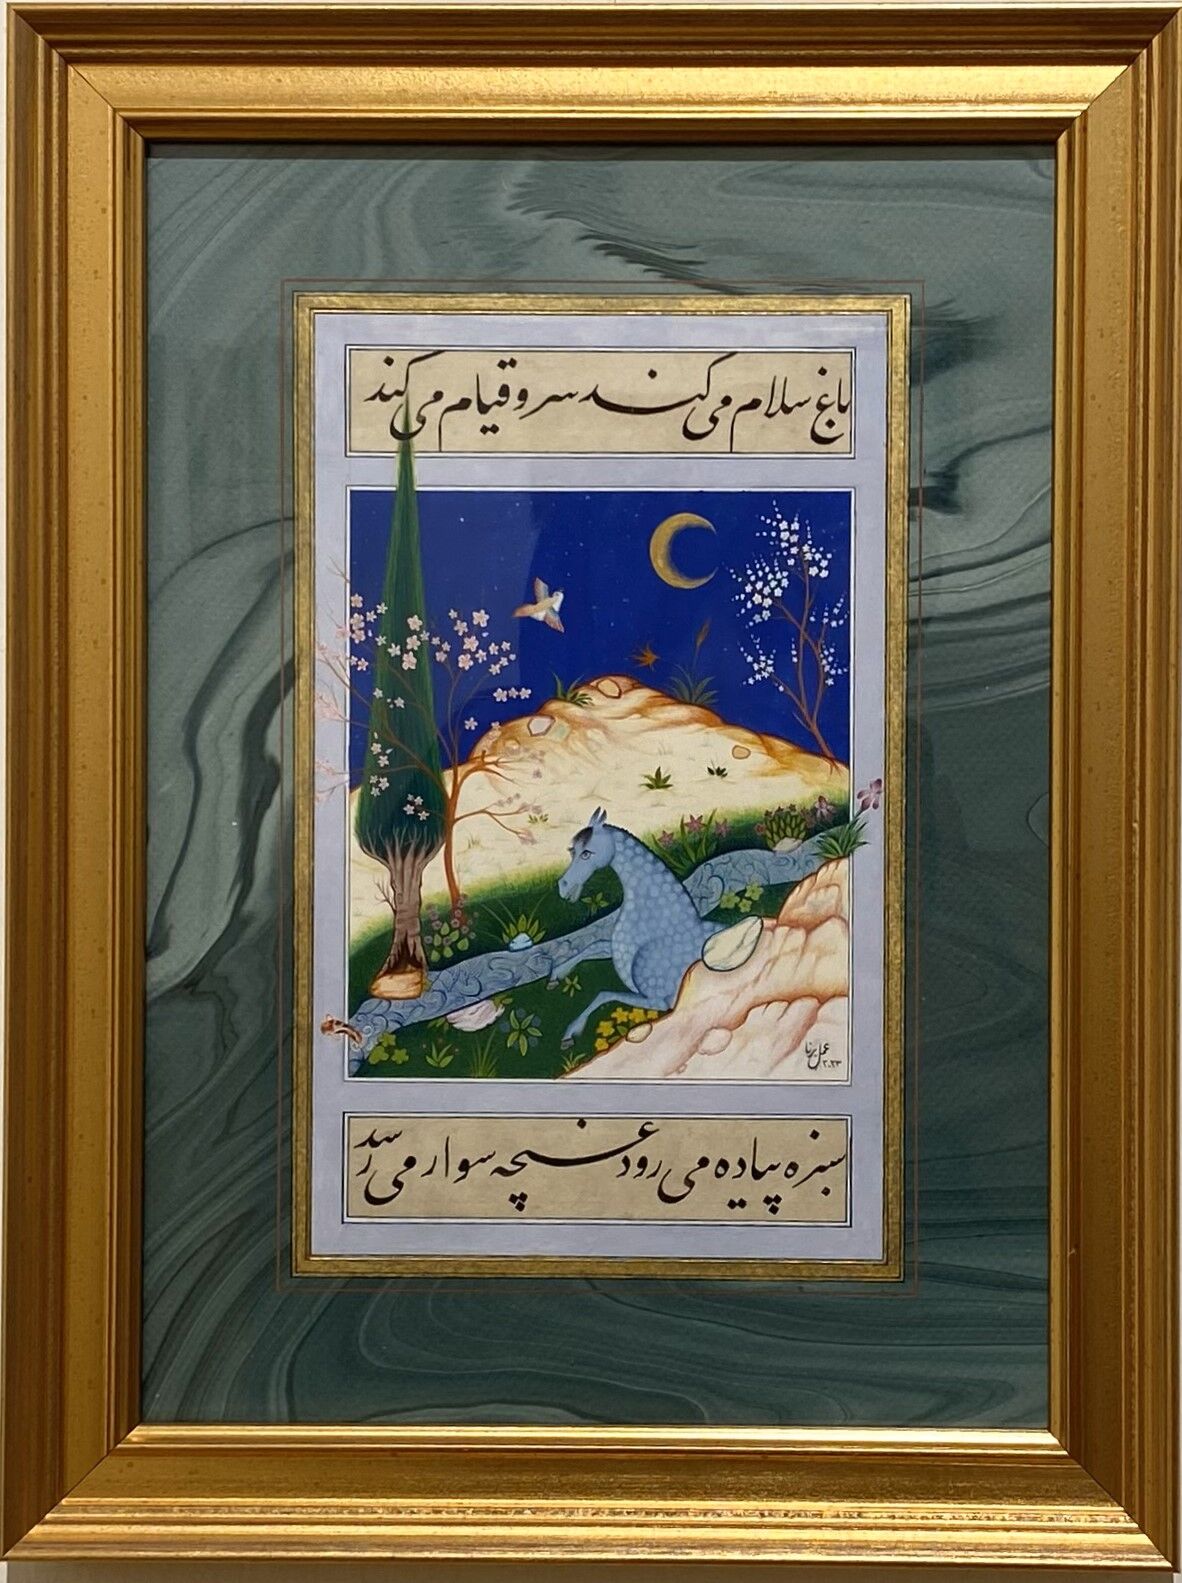 باغ سلام می‌کند سرو قیام می‌کند
عمل برنا
۲۰۲۳
سبزه پیاده می‌رود غنچه سوار می‌رسد